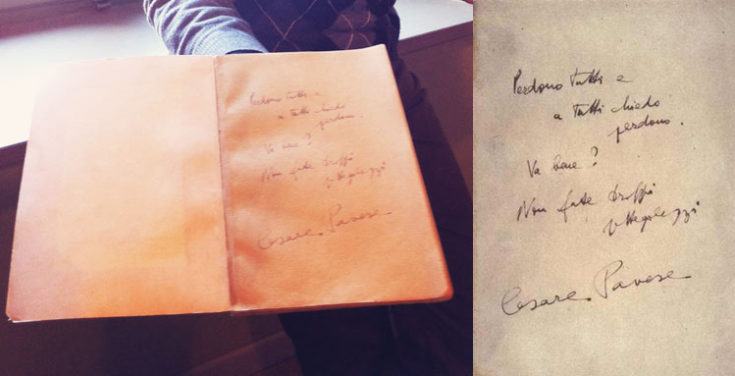 Perdono tutti e
a tutti chiedo
perdono.
Va bene?
Non fate troppi
pettegolezzi
Cesare Pavese
Perdono tutti e
a tutti chiedo
perdono.
Va bene?
Non fate troppi
pettegolezzi
Cesare Pavese